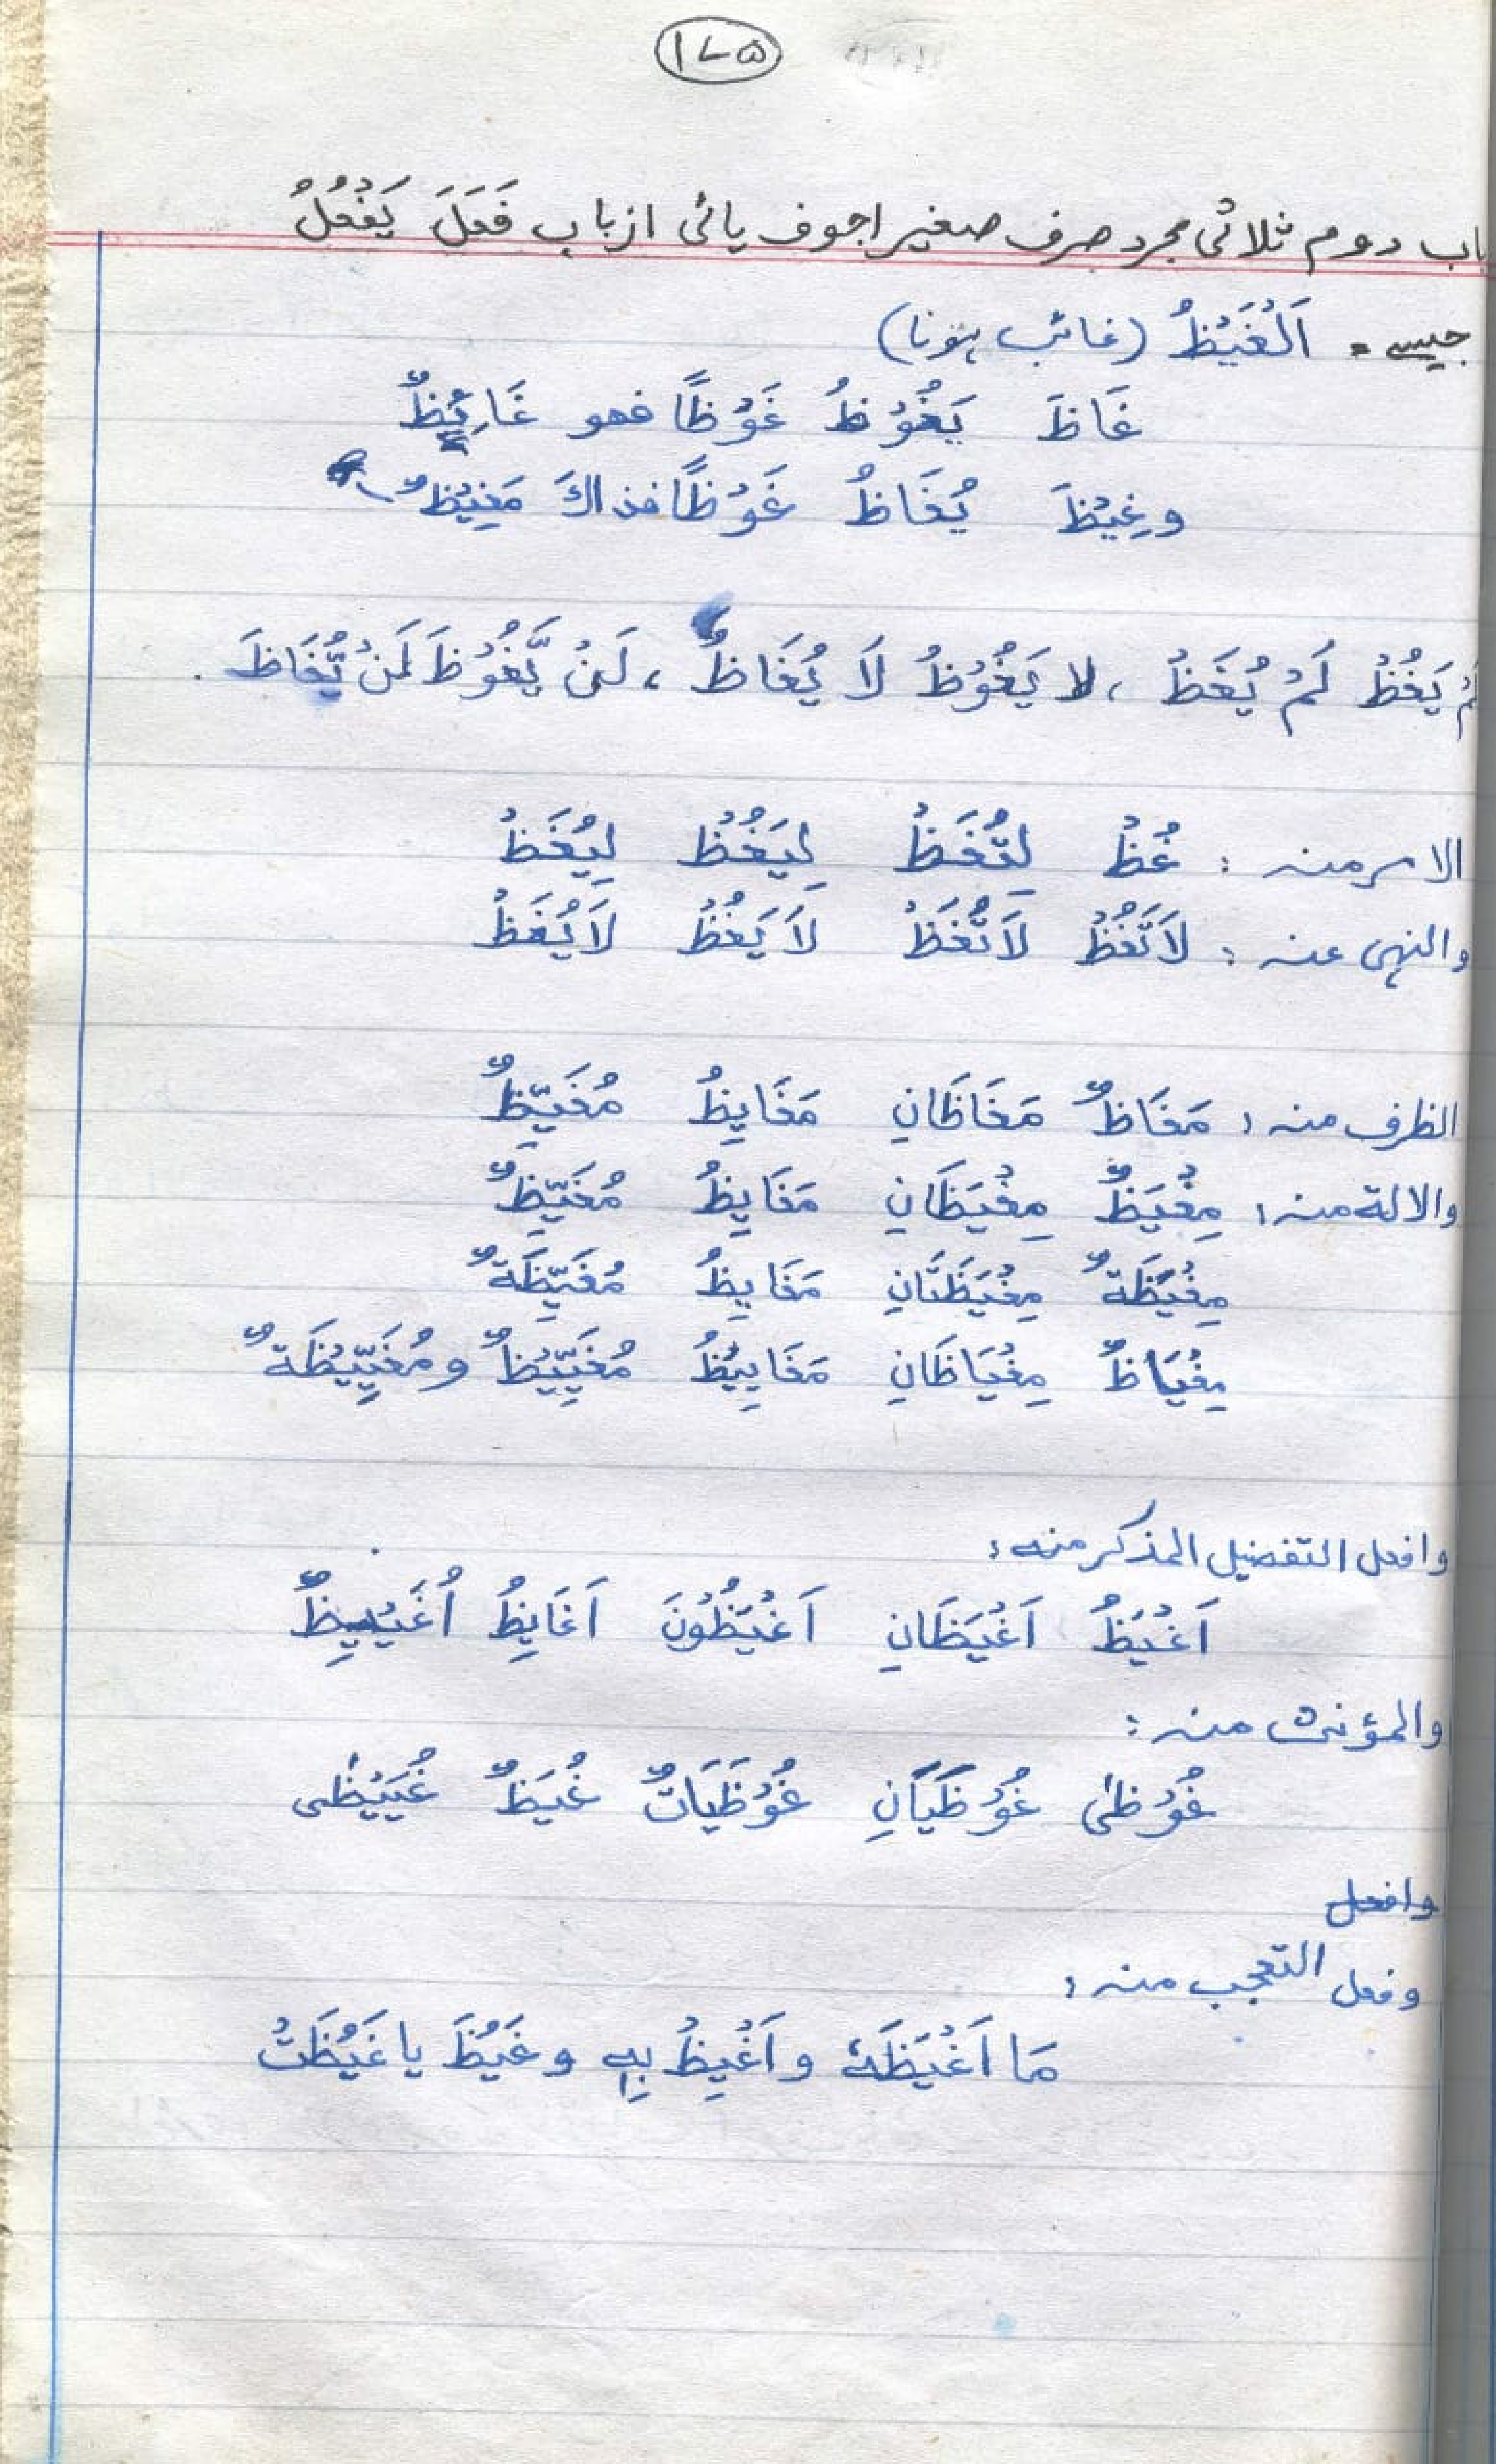 ۱۷۵
باب دوم ثلاثی مجرد صرف صغیر اجوف یائی از باب فَعَلَ یَفْعُلُ
جیسے ۔ اَلْغَیْظُ (غائب ہونا)
غَاظَ یَغُوْظُ غَوْظًا فهو غَائِظٌ
وغِیْظَ یُغَاظُ غَوْظًا فذاكَ مَغِیْظٌ
لَمْ یَغُظْ لَمْ یُغَظْ ، لا یَغُوْظُ لَا یُغَاظُ ، لَنْ یَّغُوْظَ لَنْ یُّغَاظَ .
الامر منه : غُظْ لِتُغَظْ لِیَغُظْ لِیُغَظْ
والنهی عنه : لَاتَغُظْ لَاتُغَظْ لَا یَغُظْ لَایُغَظْ
الظرف منه : مَغَاظٌ مَغَاظَانِ مَغَایِظُ مُغَیِّظٌ
والالة منه : مِغْیَظٌ مِغْیَظَانِ مَغَایِظُ مُغَیِّظٌ
مِغْیَظَةٌ مِغْیَظَتَانِ مَغَایِظُ مُغَیِّظَةٌ
مِغْیَاظٌ مِغْیَاظَانِ مَغَایِیْظُ مُغَیِّیْظٌ ومُغَیِّیْظَةٌ
وافعل التفضیل المذکر منه :
اَغْیَظُ اَغْیَظَانِ اَغْیَظُوْنَ اَغَایِظُ اُغَیْیِظٌ
والمؤنث منه :
غُوْظٰی غُوْظَیَانِ غُوْظَیَاتٌ غُیَظٌ غُیَیْظٰی
وافعل
وفعل التعجب منه :
مَا اَغْیَظَهٗ و اَغْیِظْ بِهٖ و غَیُظَ یا غَیُظَتْ